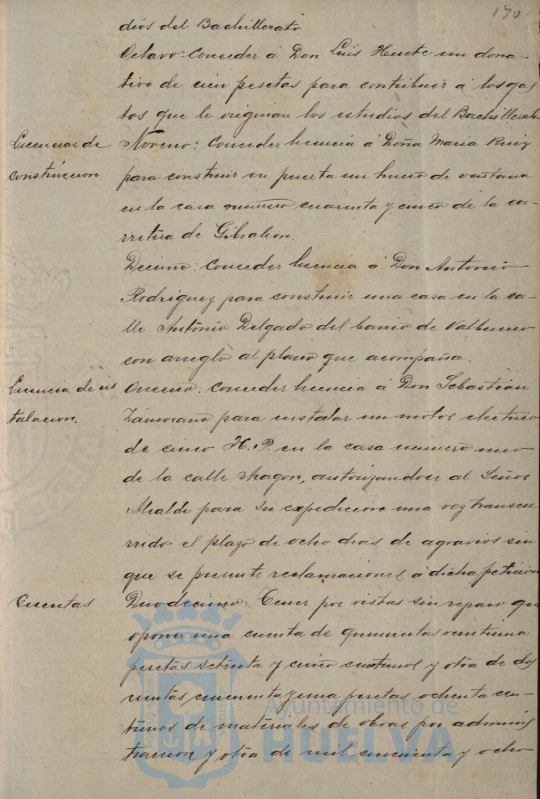 170
dios del Bachillerato
Octavo: Conceder á Don Luis Huerte un dona-
tivo de cien pesetas para contribuir á los gas
tos que le originan los estudios del Bachillerato
Licencias de
construccion
Noveno: Conceder licencia á Doña Maria Ruiz
para construir en puerta un hueco de ventana
en la casa número cuarenta y cinco de la ca-
rretera de Gibraleon.
Decimo: Conceder licencia á Don Antonio
Rodriguez para construir una casa en la ca-
lle Antonio Delgado del barrio de Valbueno
con arreglo al plano que acompaña.
Licencia de ins
talacion.
Onceno: Conceder licencia á Don Sebastian
Zamorano para instalar un motor electrico
de cinco H.P. en la casa número
de la calle Aragon, autorizandose al Señor
Alcalde para su expedicion una vez transcu-
rrido el plazo de ocho dias de agravios sin
que se presente reclamaciones á dicha peticion
Cuentas
Duodecimo: Tener por vistas sin reparo que
oponer una cuenta de quinientas veintiuna
pesetas setenta y cinco centimos y otra de dos
cientas cincuenta y una pesetas ochenta cen-
timos de materiales de obras por adminis
tracion y otra de mil cincuenta y ocho
Ayuntamiento de
HUELVA